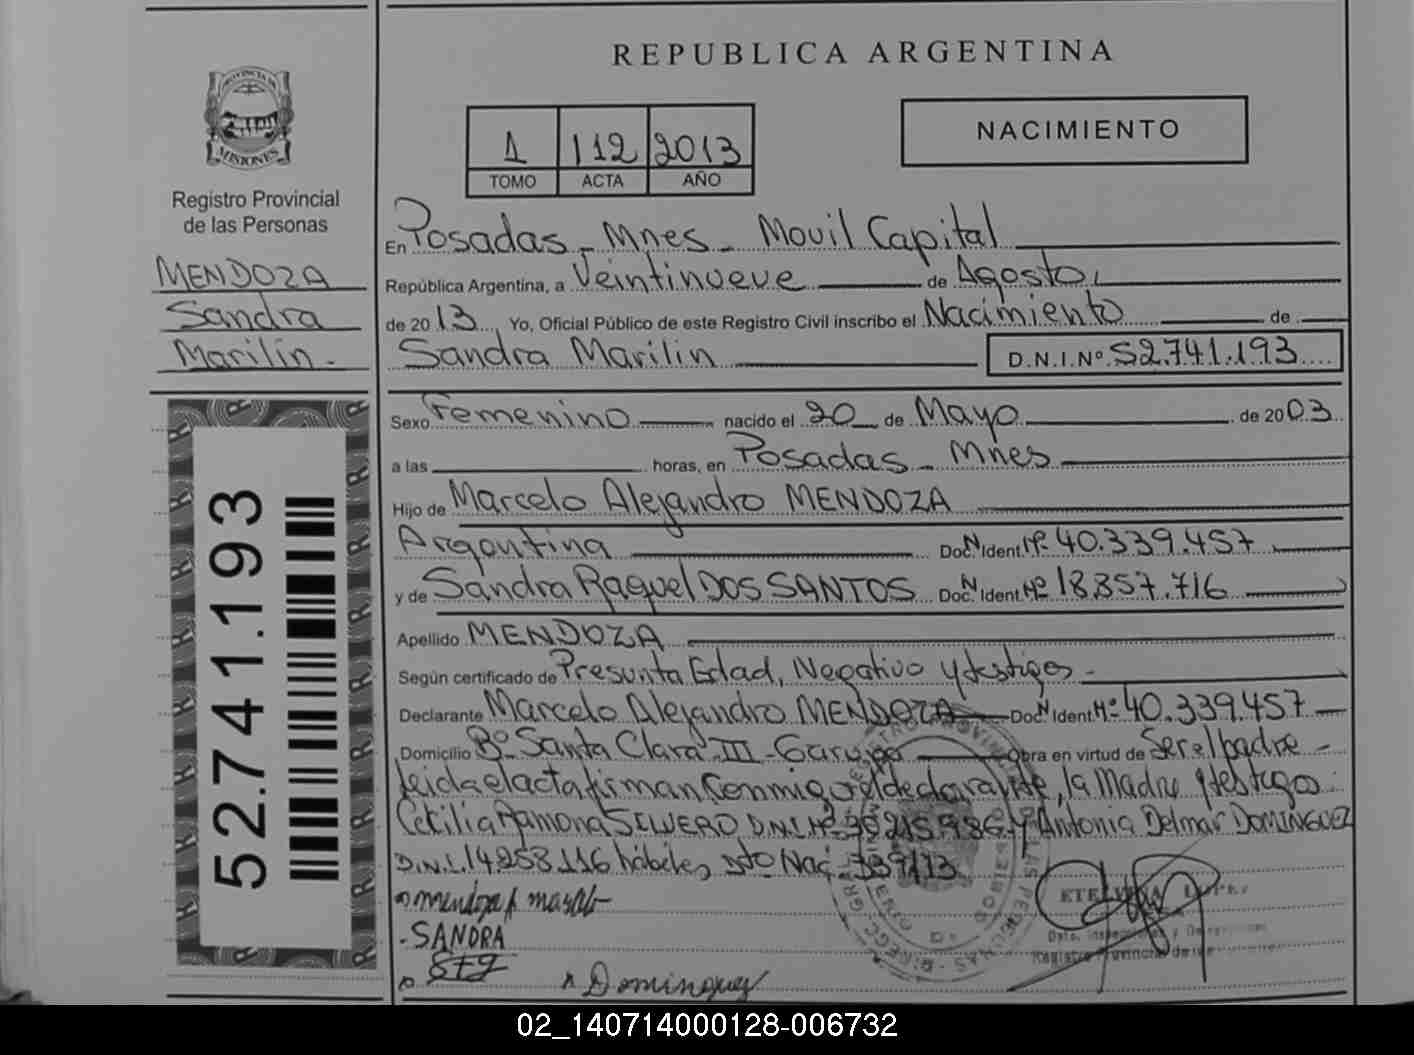 REPUBLICA ARGENTINA
PROVINCIA DE
MISIONES
Registro Provincial
de las Personas
MENDOZA
Sandra
Marilin.-
1 112 2013
TOMO ACTA AÑO
NACIMIENTO
En Posadas - Mnes - Movil Capital
República Argentina, a Veintinueve de Agosto,
de 2013, Yo, Oficial Público de este Registro Civil inscribo el Nacimiento de
Sandra Marilin D.N.I.Nº 52.741.193
Sexo Femenino nacido el 20 de Mayo de 2003
a las horas, en Posadas - Mnes
Hijo de Marcelo Alejandro MENDOZA
Argentina Doc. N Ident Nº 40.339.457
y de Sandra Raquel DOS SANTOS Doc. N Ident Nº 18.357.716
Apellido MENDOZA
Según certificado de Presunta Edad, Negativo y testigos -
Declarante Marcelo Alejandro MENDOZA Doc N Ident Nº 40.339.457
Domicilio Bº Santa Clara III - Garupa Obra en virtud de Ser el padre -
leida el acta firman conmigo el declarante, la Madre y testigos:
Ramona D.N.I. Nº y Antonia Delmar DOMINGUEZ
D.N.I. 14.258.116 hábiles, Dto Nac. 339/13
mendoza marcelo
- SANDRA
Dominguez
52.741.193
02_140714000128-006732